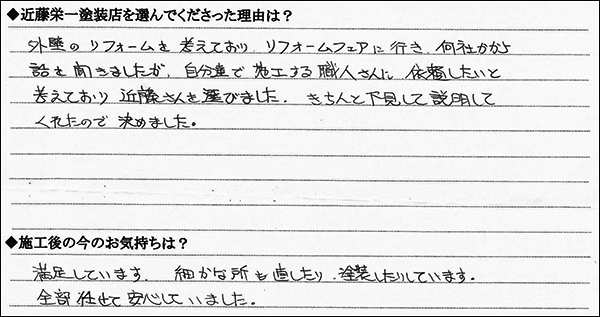 ◆近藤栄一塗装店を選んでくださった理由は？
外壁のリフォームを考えており、リフォームフェアに行き、何社かから
話を聞きましたが、自分達で施工する職人さんに依頼したいと
考えており近藤さんを選びました。きちんと下見して説明して
くれたので決めました。
◆施工後の今のお気持ちは？
満足しています。細かな所も直したり、塗装したりしています。
全部任せて安心していました。